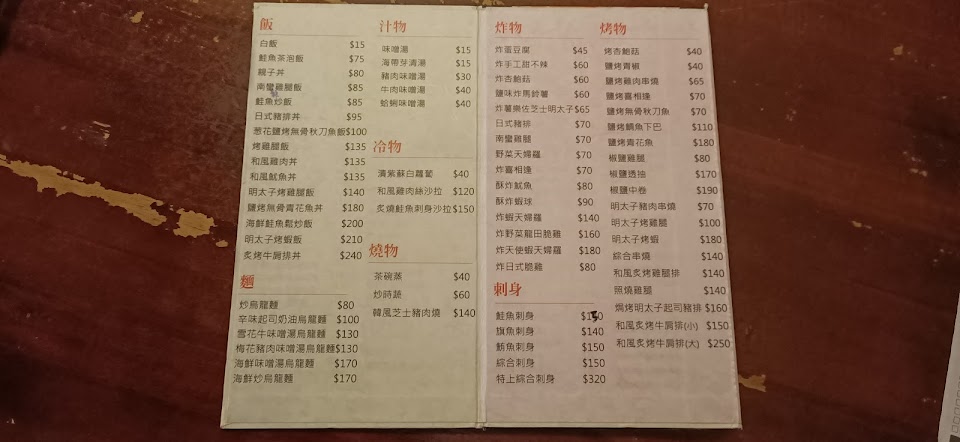 飯
白飯 $15
鮭魚茶泡飯 $75
親子丼 $80
南蠻雞腿飯 $85
鮭魚炒飯 $85
日式豬排丼 $95
蔥花鹽烤無骨秋刀魚飯$100
烤雞腿飯 $135
和風雞肉丼 $135
和風魷魚丼 $135
明太子烤雞腿飯 $140
鹽烤無骨青花魚丼 $180
海鮮鮭魚鬆炒飯 $200
明太子烤蝦飯 $210
炙烤牛肩排丼 $240
麵
炒烏龍麵 $80
辛味起司奶油烏龍麵 $100
雪花牛味噌湯烏龍麵 $130
梅花豬肉味噌湯烏龍麵$130
海鮮味噌湯烏龍麵 $170
海鮮炒烏龍麵 $170
汁物
味噌湯 $15
海帶芽清湯 $15
豬肉味噌湯 $30
牛肉味噌湯 $40
蛤蜊味噌湯 $40
冷物
漬紫蘇白蘿蔔 $40
和風雞肉絲沙拉 $120
炙燒鮭魚刺身沙拉$150
燒物
茶碗蒸 $40
炒時蔬 $60
韓風芝士豬肉燒 $140
炸物
炸蛋豆腐 $45
炸手工甜不辣 $60
炸杏鮑菇 $60
鹽味炸馬鈴薯 $60
炸薯樂佐芝士明太子$65
日式豬排 $70
南蠻雞腿 $70
野菜天婦羅 $70
炸喜相逢 $70
酥炸魷魚 $80
酥炸蝦球 $90
炸蝦天婦羅 $140
炸野菜龍田脆雞 $160
炸天使蝦天婦羅 $180
炸日式脆雞 $80
刺身
鮭魚刺身
旗魚刺身 $140
鮪魚刺身 $150
綜合刺身 $150
特上綜合刺身 $320
烤物
烤杏鮑菇 $40
鹽烤青椒 $40
鹽烤雞肉串燒 $65
鹽烤喜相逢 $70
鹽烤無骨秋刀魚 $70
鹽烤鯛魚下巴 $110
鹽烤青花魚 $180
椒鹽雞腿 $80
椒鹽透抽 $170
椒鹽中卷 $190
明太子豬肉串燒 $70
明太子烤雞腿 $100
明太子烤蝦 $180
綜合串燒 $140
和風炙烤雞腿排 $140
照燒雞腿 $140
焗烤明太子起司豬排 $160
和風炙烤牛肩排(小) $150
和風炙烤牛肩排(大) $250